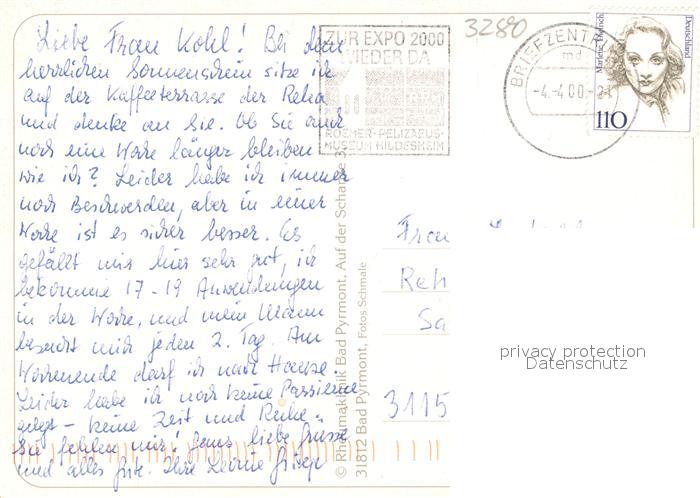 Liebe Frau Kohl! Bei dem
herrlichen Sonnenschein sitze ich
auf der Kaffeeterrasse der Reha
und denke an Sie. Ob Sie auch
noch eine Woche länger bleiben
wie ich? Leider habe ich immer
noch Beschwerden, aber in einer
Woche ist es sicher besser. Es
gefällt mir hier sehr gut, ich
bekomme 17-19 Anwendungen
in der Woche, und mein Mann
besucht mich jeden 2. Tag. Am
Wochenende darf ich nach Hause.
Leider habe ich noch keine Passiene
gelegt - keine Zeit und Ruhe.
Sie fehlen mir! Ganz liebe Grüsse
und alles Gute. Ihre
ZUR EXPO 2000
WIEDER DA
ROEMER-PELIZAEUS-
MUSEUM HILDESHEIM
3280
BRIEFZENTRUM
md
-4.-4.00.-21
Marlene Dietrich
Deutschland
110
© Rheumaklinik Bad Pyrmont. Auf der Schanze 3
31812 Bad Pyrmont, Fotos Schmale
Frau
Reh
Sa
3115
privacy protection
Datenschutz